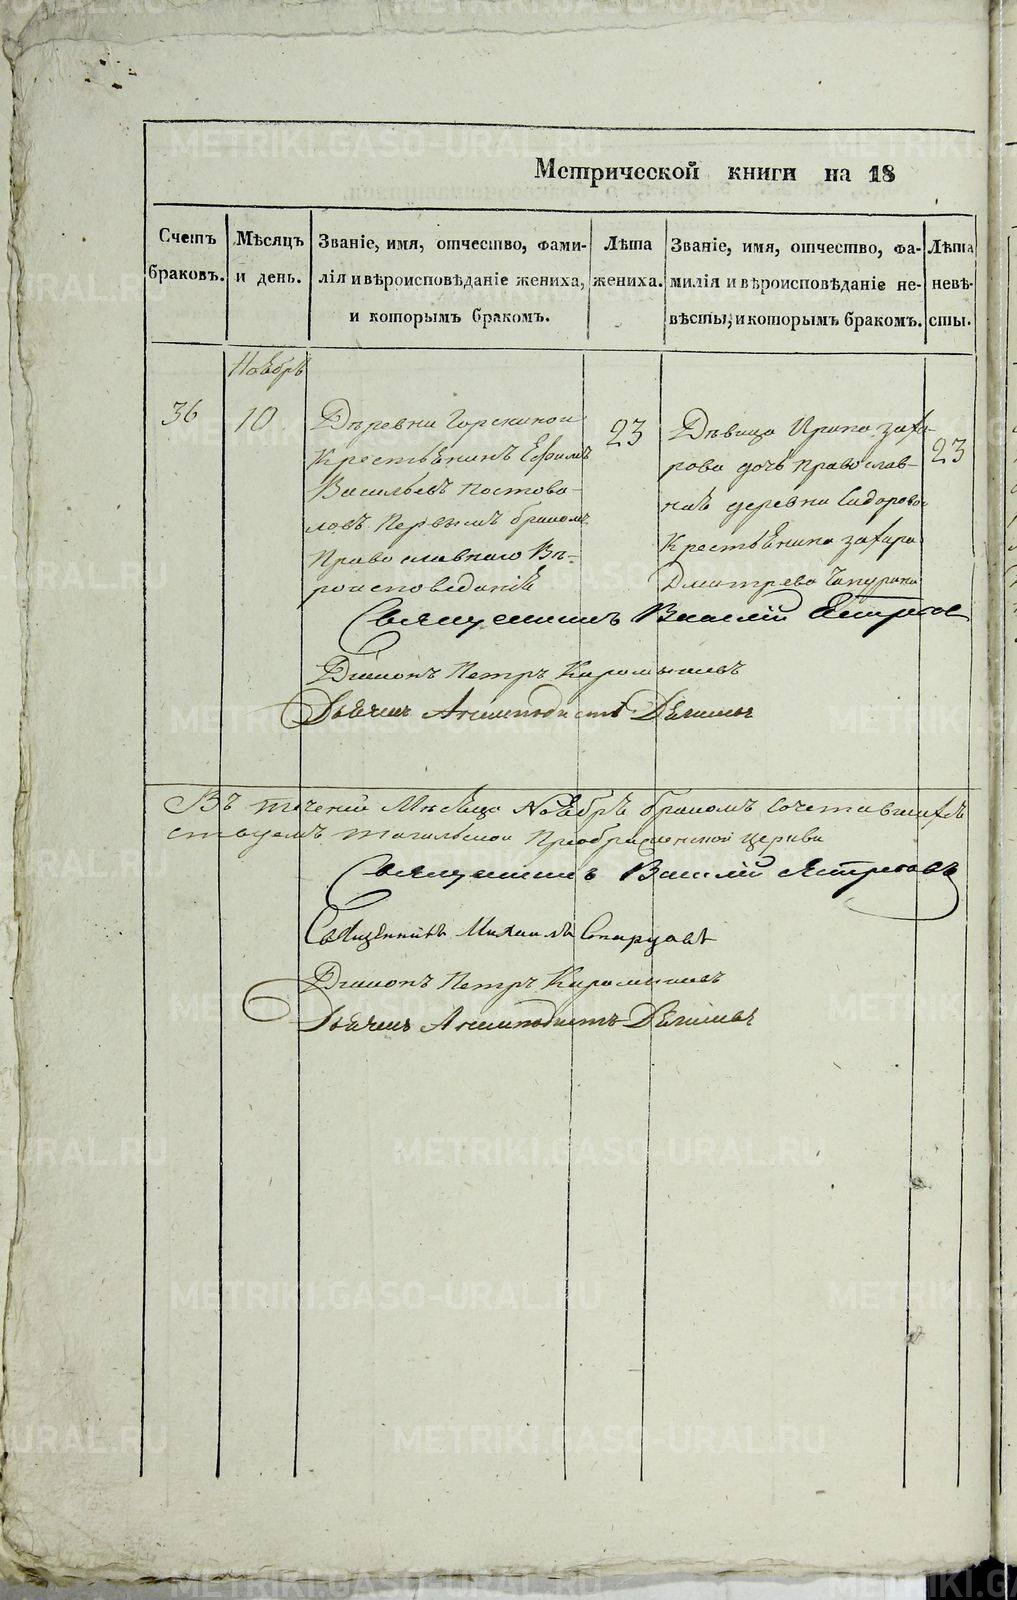 Метрической книги на 18
Счетъ браковъ.
Мѣсяцъ и день.
Званіе, имя, отчество, фами-
лія и вѣроисповѣданіе жениха,
и которымъ бракомъ.
Лѣта
жениха.
Званіе, имя, отчество, фа-
милія и вѣроисповѣданіе не-
вѣсты, и которымъ бракомъ.
Лѣта
невѣ-
сты.
Ноябрь
36
10
Деревни Горскиной
Крестьянинъ Ефимъ
Васильевъ Постова-
ловъ Первымъ бракомъ
Православнаго Вѣ-
роисповеданія
23
Дѣвица Ирина Заха-
рова дочь Православ-
ная деревни Сидоровой
Крестьянина Захара
Дмитрева Чапурина
23
Священникъ Василій Ястребов
Діаконъ Петръ Карамышевъ
Дьячекъ Анемподистъ
Въ течении Месяца Ноября бракомъ Сочетавшихся
Тагильской Преображенской церкви
Священникъ Василій Ястребовъ
Священникъ Михаилъ
Діаконъ Петръ Карамышевъ
Дьячекъ Анемподистъ
METRIKI.GASO-URAL.RU